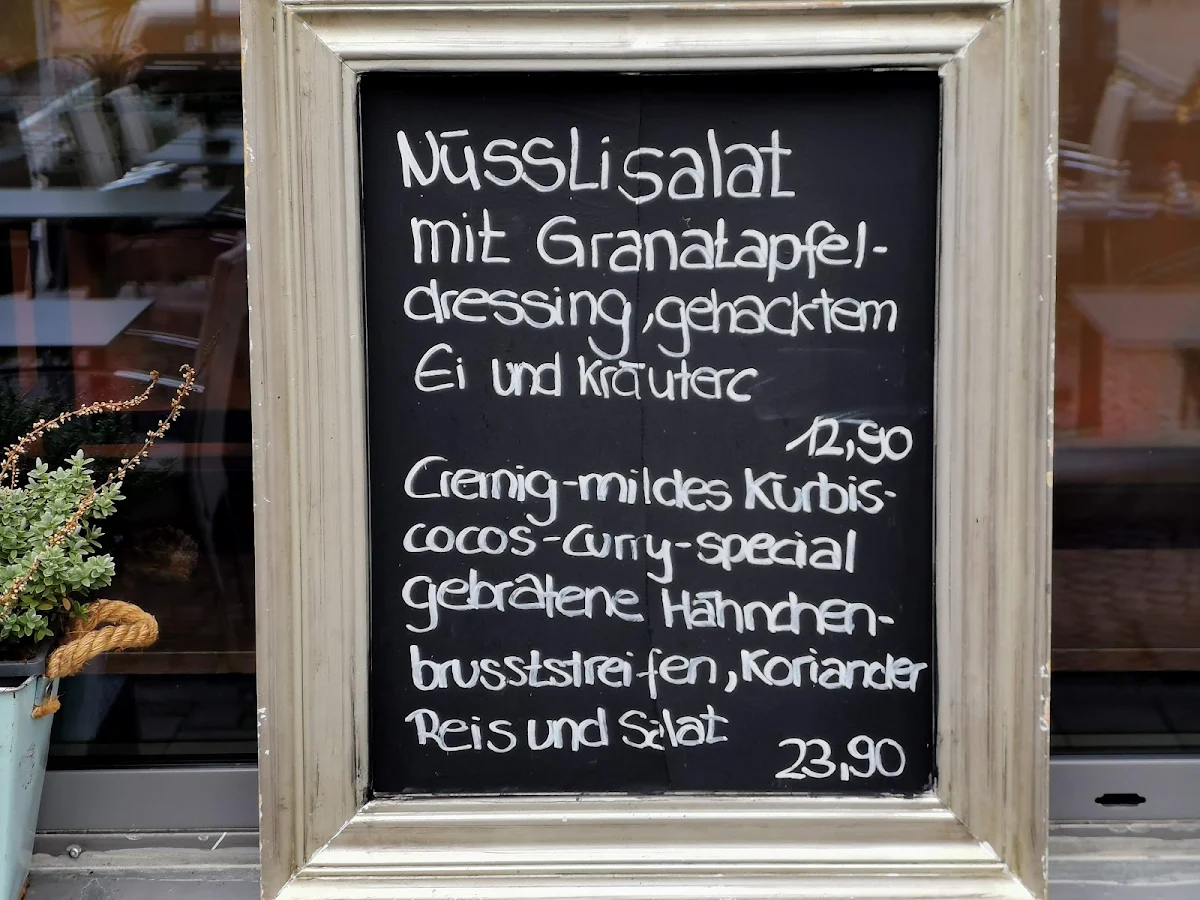 Nüsslisalat
mit Granatapfel-
dressing, gehacktem
Ei und Kräuterc
12,90
Cremig-mildes Kürbis-
cocos-Curry-special
gebratene Hähnchen-
brusststreifen, Koriander
Reis und Salat
23,90